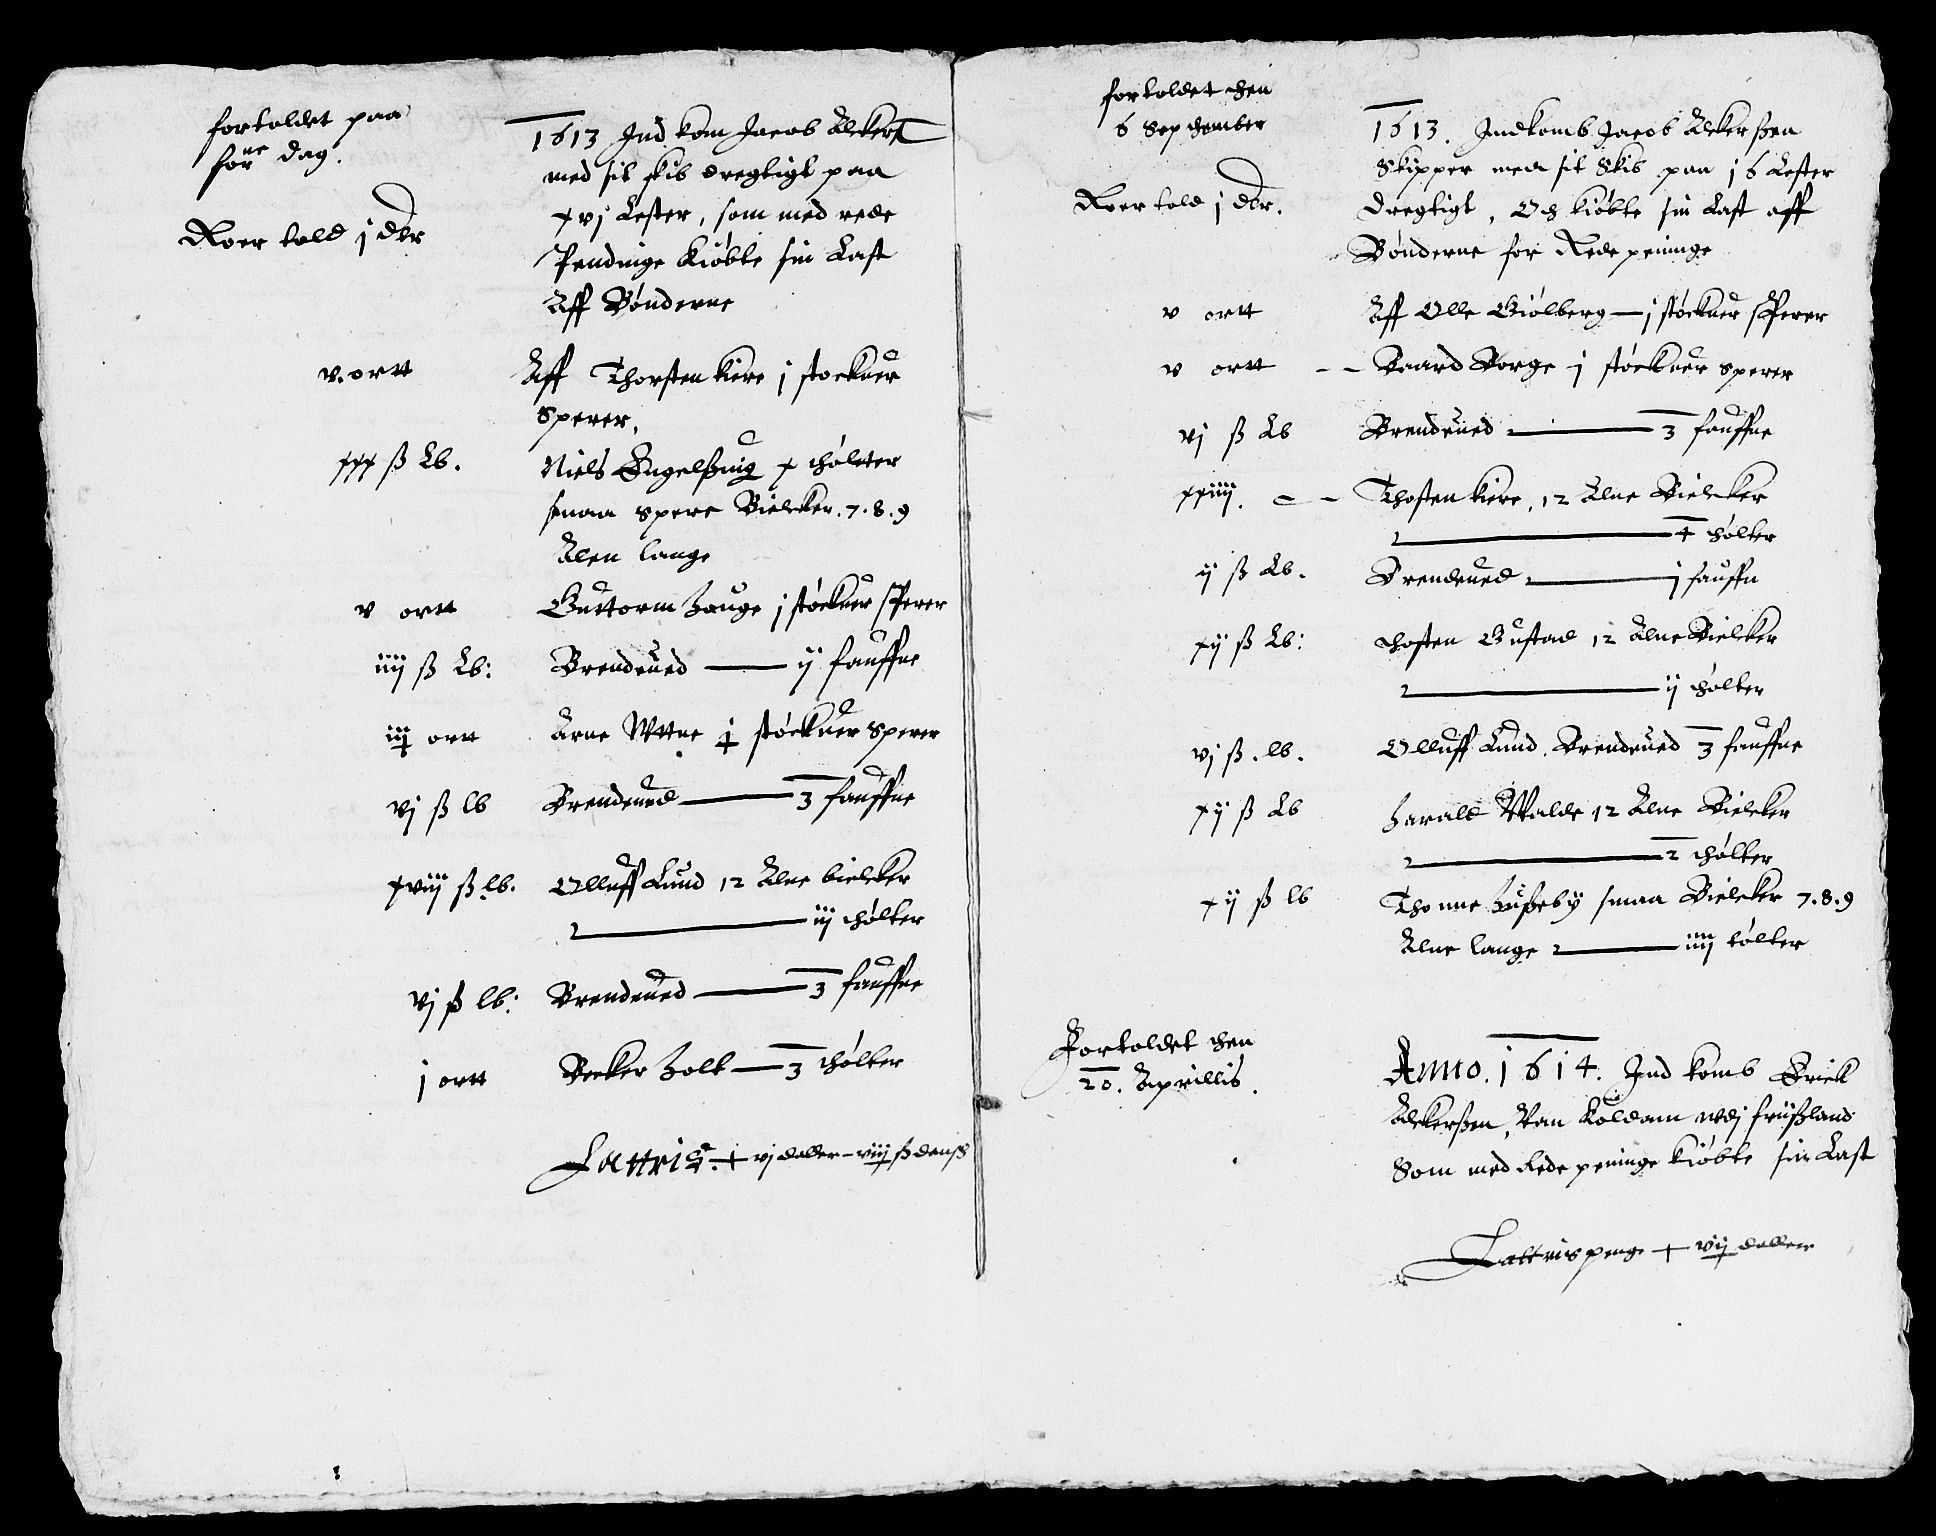 fortoldet paa
for^ne dag.
Roer told j dlr
1613 Ind kom Jacob Alckers
med sit skib dregtigt paa
xvj Lester, som med rede
Pendinge Kiøbte sin Last
Aff Bønderne
v. ortt Aff Thorsten kiere j stockuer
Sperer,
xxx ß Lb. Niels Engelßuig x thølter
smaa spere Bielcker. 7. 8. 9
Alen lange
v ortt Guttorm Houge j støckuer sperer
iiij ß Lb: Brendeued — ij fauffne
ortt Arne støckuer Sperer
vj ß lb Brendeued — 3 fauffne
xviij ß lb. Olluff Lund 12 Alne bielcker
— iij thølter
vj ß lb: Brendeued — 3 fauffne
j ortt Becker holt — 3 thølter
Lattris + vj daller – viij ß danß
fortoldet then
6 September
Roer told j dlr.
1613. Indkomb Jacob Alckerßen
Skipper med sit Skib paa 16 Lester
dregtigt, Och kiøbte sin Last aff
Bønderne for Rede peninge
v ortt Aff Olle Giølberg — j støckuer sperer
v ortt – – Baard Borge j støckuer sperer
vj ß Lb Brendeued — 3 fauffne
xxiiij. – – Thosten kiere, 12 Alne Bielcker
— 4 thølter
ij ß Lb. Brendeued — j fauffn
xij ß Lb: Thosten Gustad 12 Alne Bielcker
— ij thølter
vj ß. lb. Olluff Lund. Brendeued 3 fauffne
xij ß Lb Harald Walde 12 Alne Bielcker
— 2 thølter
xij ß lb Thonne Hußeby smaa Bielcker 7. 8. 9
Alne lange — iiij tølter
Fortoldet then
20. Aprillis.
Anno. 1614. Ind komb Erick
Alckerßen, Van Koldam wdj frijßland
Som med Rede peninge kiøbte sin Last
Lattris penge + vij daller